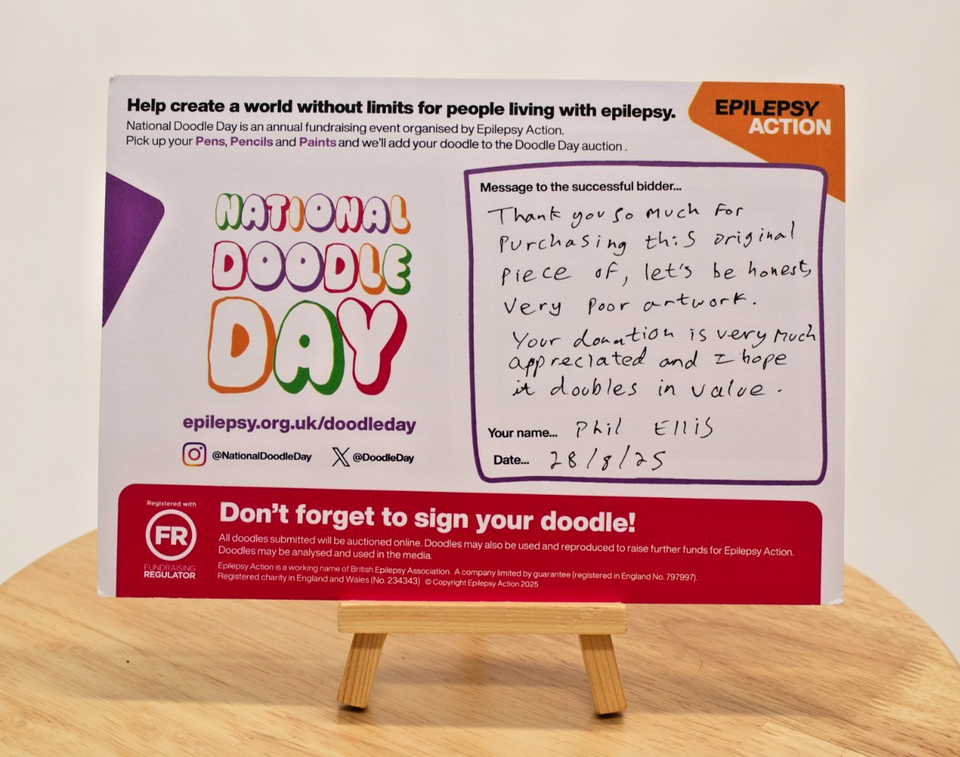 Help create a world without limits for people living with epilepsy.
National Doodle Day is an annual fundraising event organised by Epilepsy Action.
Pick up your Pens, Pencils and Paints and we'll add your doodle to the Doodle Day auction.
EPILEPSY
ACTION
NATIONAL
DOODLE
DAY
epilepsy.org.uk/doodleday
@NationalDoodleDay
@DoodleDay
Message to the successful bidder...
Thank you so much for
purchasing this original
piece of, let's be honest,
very poor artwork.
Your donation is very much
appreciated and I hope
it doubles in value.
Your name... Phil Ellis
Date... 28/8/25
Registered with
FR
FUNDRAISING
REGULATOR
Don't forget to sign your doodle!
All doodles submitted will be auctioned online. Doodles may also be used and reproduced to raise further funds for Epilepsy Action.
Doodles may be analysed and used in the media.
Epilepsy Action is a working name of British Epilepsy Association. A company limited by guarantee (registered in England No. 797997).
Registered charity in England and Wales (No. 234343) © Copyright Epilepsy Action 2025